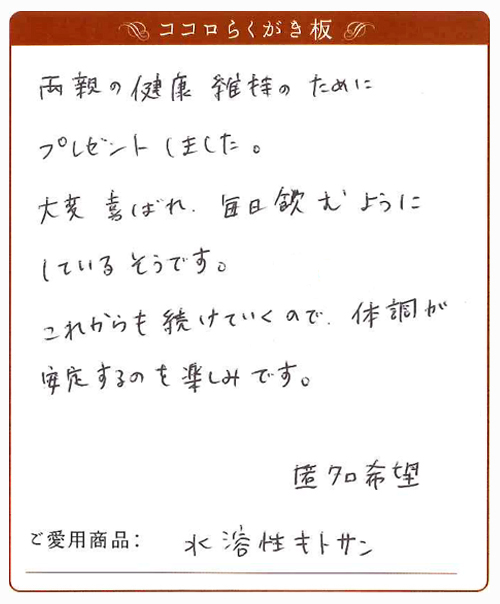 ココロらくがき板
両親の健康維持のために
プレゼントしました。
大変喜ばれ、毎日飲むように
しているそうです。
これからも続けていくので、体調が
安定するのを楽しみです。
匿名希望
ご愛用商品： 水溶性キトサン